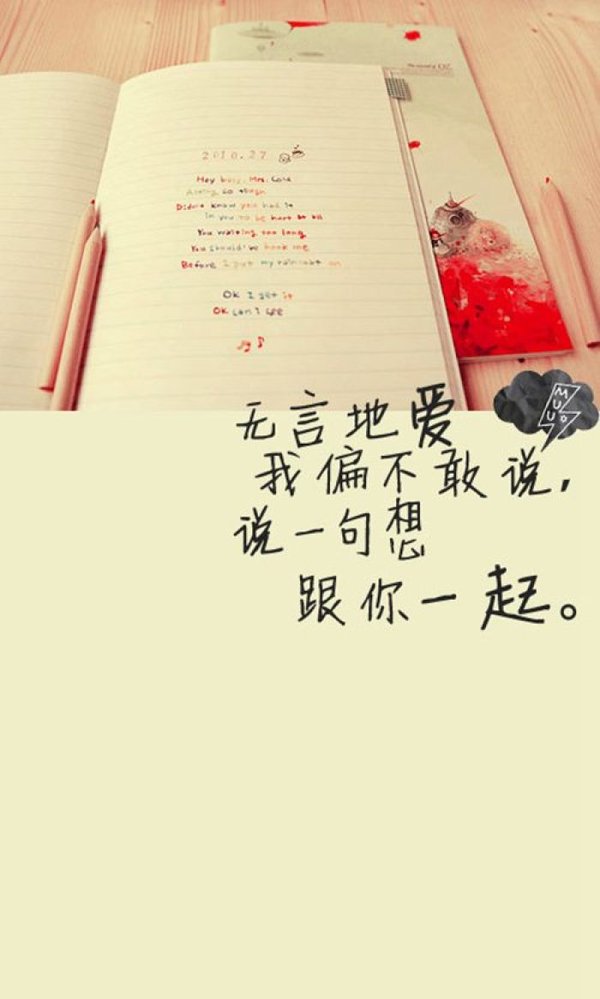 2010.27
Hey boy, Mrs. Cold
Acting so tough
Didn't know you had it
in you to be hurt at all
You waiting too long
You should've hook me
Before I put my raincoat on
Ok I get it
OK can I see
无言地爱
我偏不敢说,
说一句想
跟你一起。
MUUO